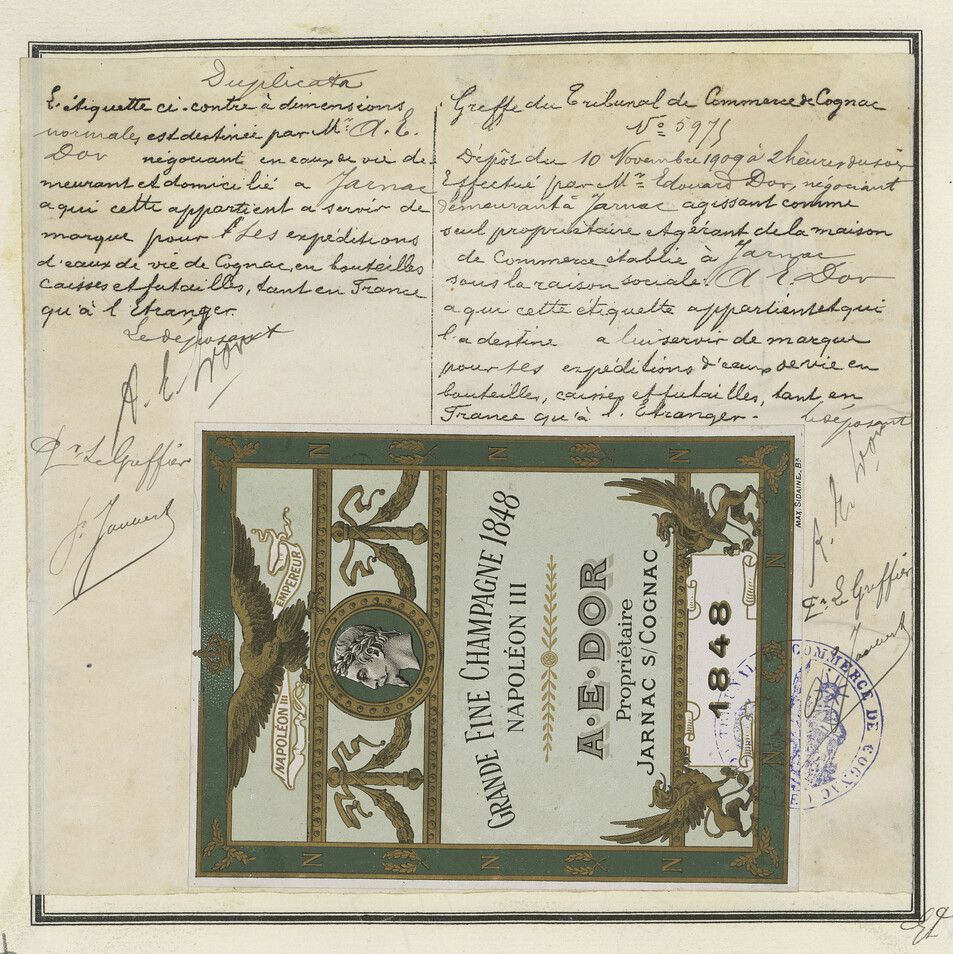 Duplicata
L'étiquette ci-contre à dimensions
normales est destinée par Mr A. E.
Dor négociant en eaux de vie de-
meurant et domicilié a Jarnac
a qui cette appartient a servir de
marque pour ses expéditions
d'eaux de vie de Cognac, en bouteilles
caisses et futailles, tant en France
qu'à l'Etranger.
Le déposant
A. E. Dor
Pr Le Greffier
Greffe du Tribunal de Commerce de Cognac
No 5975
Dépôt du 10 Novembre 1909 à 2 heures du soir
Effectué par Mr Edouard Dor, négociant
demeurant à Jarnac agissant comme
seul propriétaire et gérant de la maison
de Commerce établie à Jarnac
sous la raison sociale. A. E. Dor
a qui cette étiquette appartient et qui
l'a destine a lui servir de marque
pour ses expéditions d'eaux de vie en
bouteilles, caisses et futailles, tant en
France qu'à l'Etranger.
Le déposant
A. E. Dor
Pr Le Greffier
NAPOLÉON III EMPEREUR
GRANDE FINE CHAMPAGNE 1848
NAPOLÉON III
A·E·DOR
Propriétaire
JARNAC S/COGNAC
1848
N N N N N N
MAX. SIDAINE. Bx
TRIBUNAL DE COMMERCE DE COGNAC